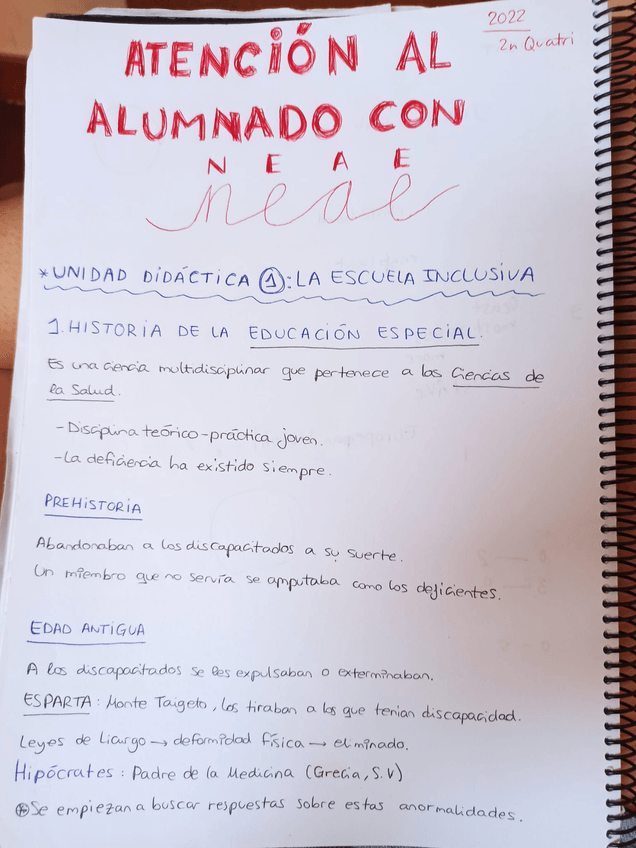 2022
2n Quatri
ATENCIÓN AL
ALUMNADO CON
N E A E
neae
*UNIDAD DIDÁCTICA 1: LA ESCUELA INCLUSIVA
1. HISTORIA DE LA EDUCACIÓN ESPECIAL.
Es una ciencia multidisciplinar que pertenece a las Ciencias de
la Salud.
-Disciplina teórico-práctica joven.
-La deficiencia ha existido siempre.
PREHISTORIA
Abandonaban a los discapacitados a su suerte.
Un miembro que no servía se amputaba como los deficientes.
EDAD ANTIGUA
A los discapacitados se les expulsaban o exterminaban.
ESPARTA: Monte Taigeto, los tiraban a los que tenían discapacidad.
Leyes de Licurgo → deformidad física → eliminado.
Hipócrates: Padre de la Medicina (Grecia, S.V)
Se empiezan a buscar respuestas sobre estas anormalidades.